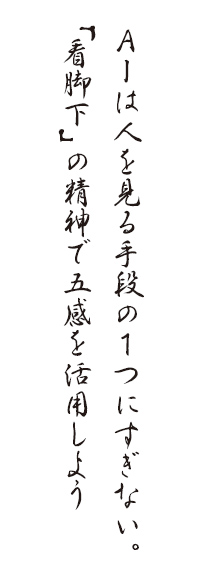 AIは人を見る手段の1つにすぎない。
『看脚下』の精神で五感を活用しよう